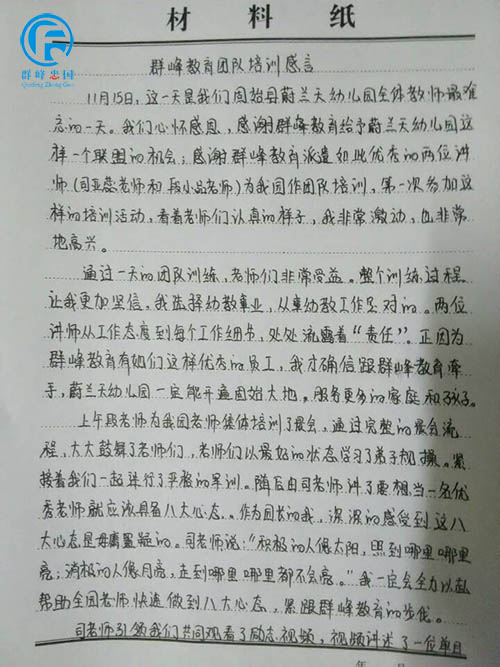 群峰忠国
Qunfeng Zhong Guo
材料纸
群峰教育团队培训感言
11月15日,这一天是我们固始县蔚兰天幼儿园全体教师最难
忘的一天。我们心怀感恩,感谢群峰教育给予蔚兰天幼儿园这
样一个联盟的机会;感谢群峰教育派遣如此优秀的两位讲
师(司亚蕊老师和段小品老师)为我园作团队培训,第一次参加这
样的培训活动,看着老师们认真的样子,我非常激动,也非常
地高兴。
通过一天的团队训练,老师们非常受益。整个训练过程
让我更加坚信,我选择幼教事业,从事幼教工作是对的。两位
讲师从工作态度到每个工作细节,处处流露着“责任”。正因为
群峰教育有她们这样优秀的员工,我才确信跟群峰教育牵
手,蔚兰天幼儿园一定能开遍固始大地。服务更多的家庭和孩子。
上午段老师为我园老师集体培训了晨会,通过完整的晨会流
程,大大鼓舞了老师们,老师们以最好的状态学习了弟子规操。紧
接着我们一起进行了严格的军训。随后由司老师讲了要想当一名优
秀老师就应该具备八大心态。作为园长的我,深深的感受到这八
大心态是毋庸置疑的。司老师说:“积极的人像太阳,照到哪里哪里
亮;消极的人像月亮,走到哪里哪里都不会亮。”我一定会全力以赴
帮助全园老师快速做到八大心态,紧跟群峰教育的步伐。
司老师引领我们共同观看了励志视频,视频讲述了一位单目
年 月